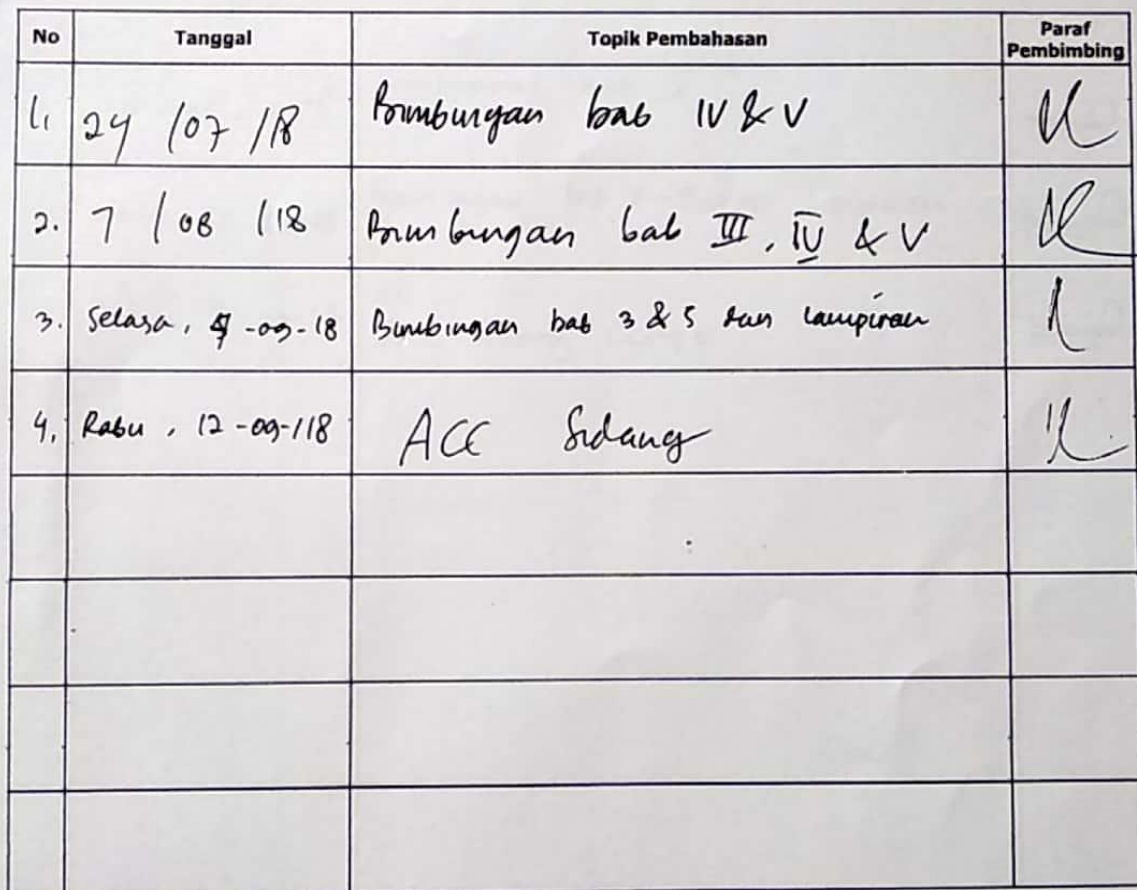 No Tanggal Topik Pembahasan Paraf Pembimbing
1. 24 /07 /18 Bimbingan bab IV & V
2. 7 /08 /18 Bimbingan bab III, IV & V
3. Selasa, -09-18 Bimbingan bab 3 & 5 dan lampiran
4. Rabu, 12-09-18 ACC Sidang